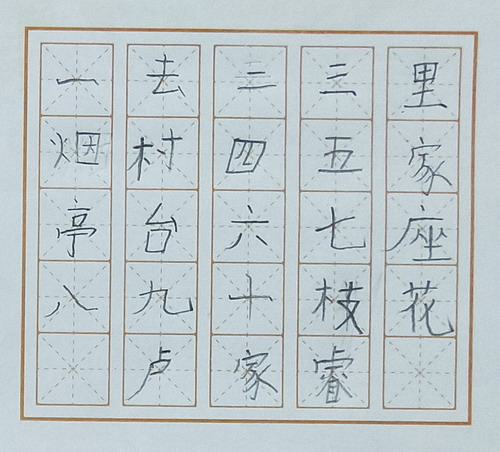 一去二三里
烟村四五家
亭台六七座
八九十枝花
卢家睿